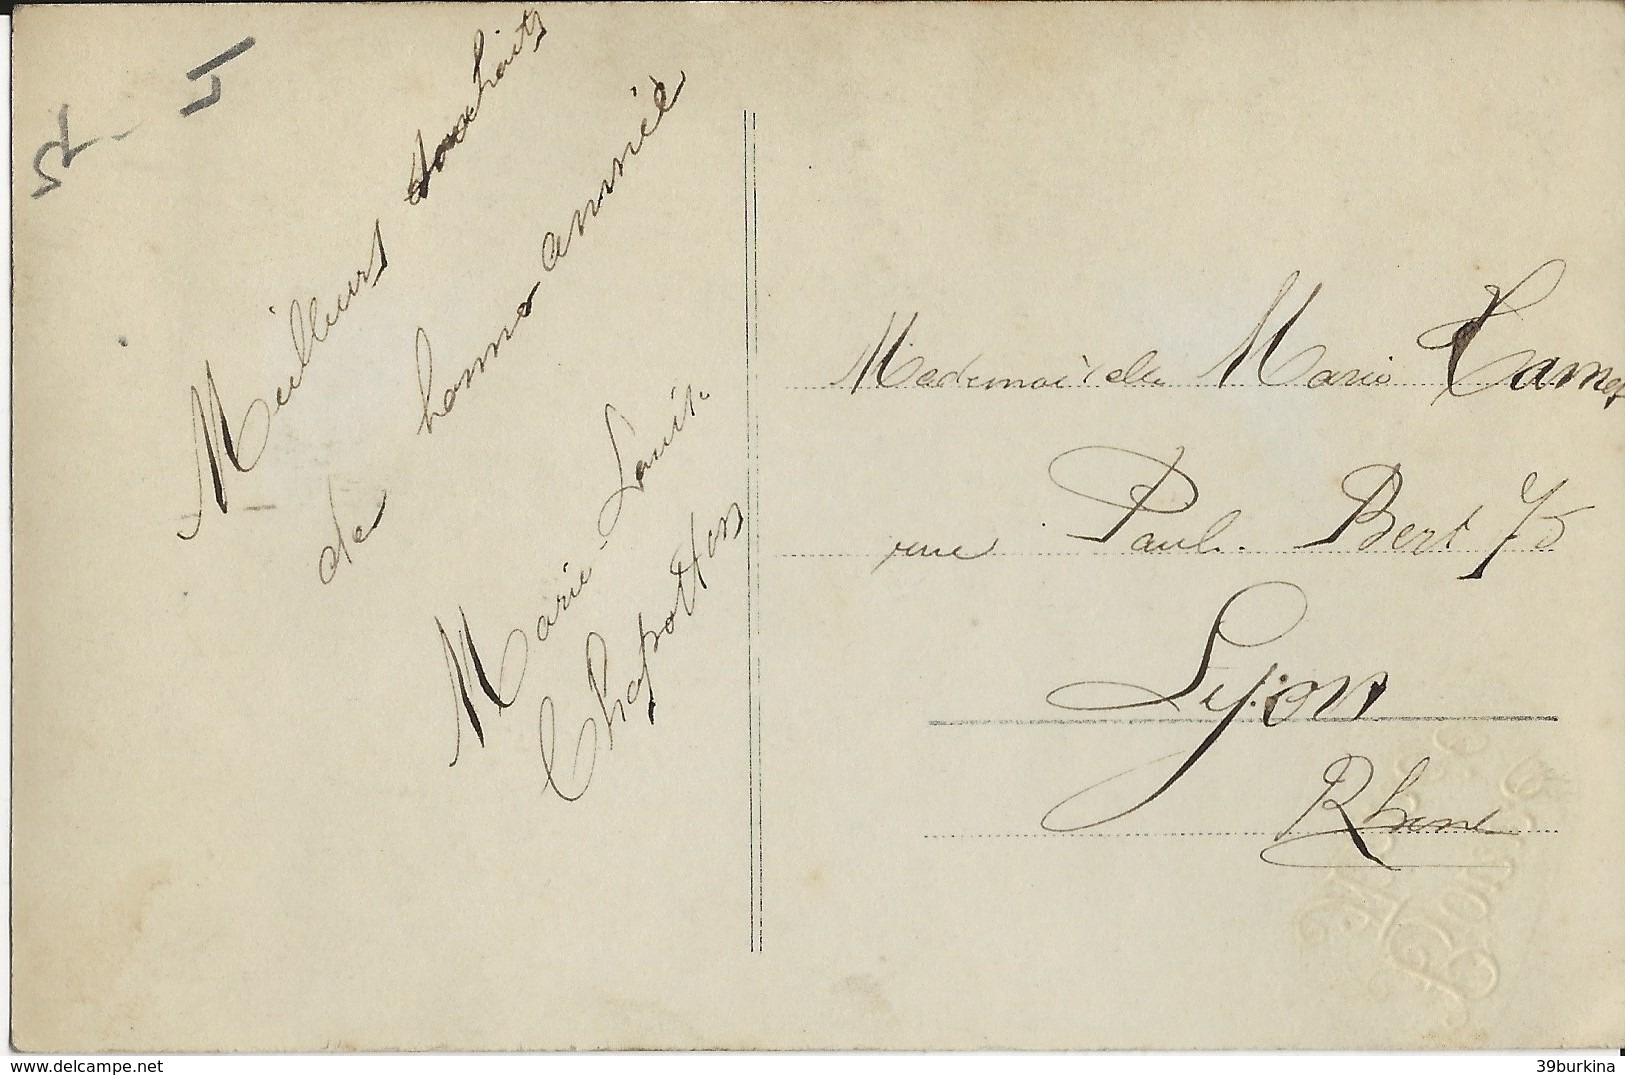 Meilleurs souhaits
de bonne année
Marie-Louise
Chapotton
Mademoiselle Marie
rue Paul Bert 75
Lyon
Rhone
39burkina